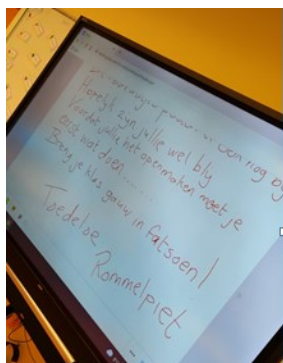 nog
Hopelijk zijn jullie wel blij
Voordat jullie het openmaken moet je
eerst wat doen.......
Breng je klas gauw in fatsoen!
Toedeloe
Rommelpiet